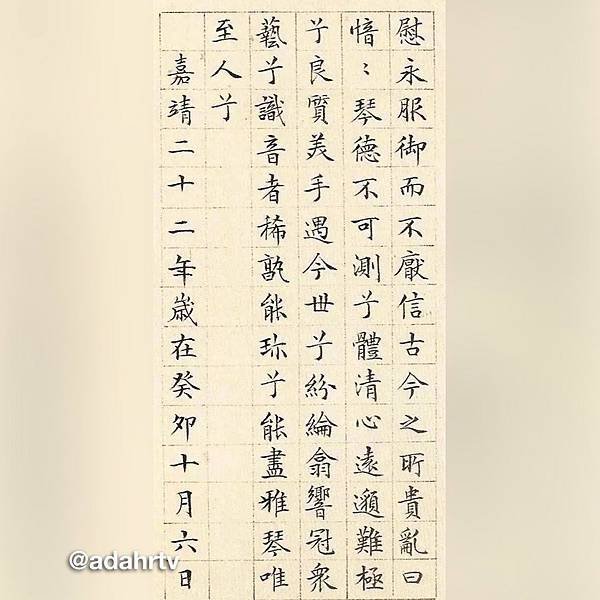 慰永服御而不厭信古今之所貴亂曰
愔〻琴德不可測兮體清心遠邈難極
兮良質美手遇今世兮紛綸翕響冠衆
藝兮識音者稀孰能珎兮能盡雅琴唯
至人兮
嘉靖二十二年歲在癸夘十月六日
@adahrtv